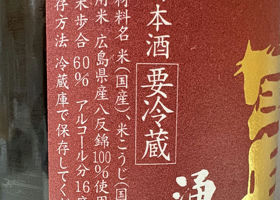 本酒 要冷蔵
材料名 米(国産)、米こうじ(国
用米 広島県産八反錦100%使用
米歩合 60% アルコール分16度
存方法 冷蔵庫で保存してくだ
酒